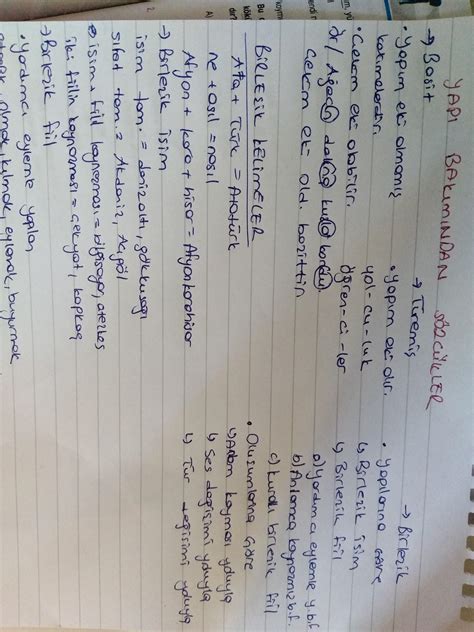 YAPI BAKIMINDAN SÖZCÜKLER
→ Basit
• Yapım eki almamış
kelimelerdir.
• Çekim eki alabilir.
Ör/ Ağacın dalına kuşlar kondu.
Çekim eki old. basittir
→ Türemiş
• Yapım ekidir.
yol-cu-luk
öğren-ci-ler
→ Birleşik
• Yapılarına göre
↳ Birleşik isim
↳ Birleşik fiil
a) Yardımcı eylemle y.b.f
b) Anlamca kaynaşmış b.f.
c) kurallı birleşik fiil
• Oluşumlarına Göre
↳ Anlam kayması yoluyla
↳ Ses değişimi yoluyla
↳ Tür değişimi yoluyla
BİRLEŞİK KELİMELER
Ata + Türk = Atatürk
ne + asıl = nasıl
Afyon + kara + hisar = Afyonkarahisar
→ Birleşik isim
isim tam. = denizaltı, gökkuşağı
sıfat tam. = Akdeniz, Acıgöl
• isim + fiil kaynaşması = bilgisayar, ateşkes
iki fiilin kaynaşması = çekyat, kapkaç
→ Birleşik fiil
• Yardımcı eylemle yapılan
olmak, kılmak, eylemek, buyurmak